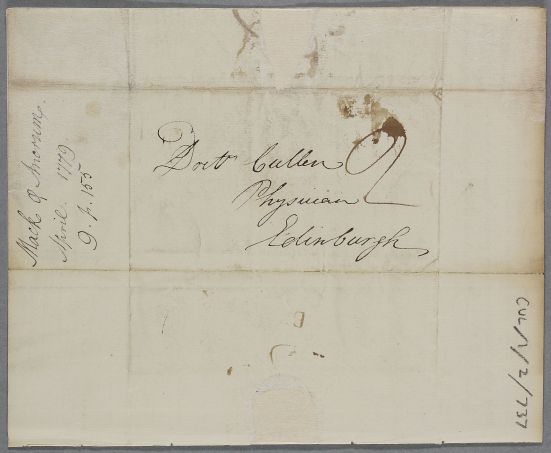 Doctr Cullen 2
Physician
Edinburgh
Mack Q Anorium.
April. 1779
9. p. 155
CUL/1/2/737